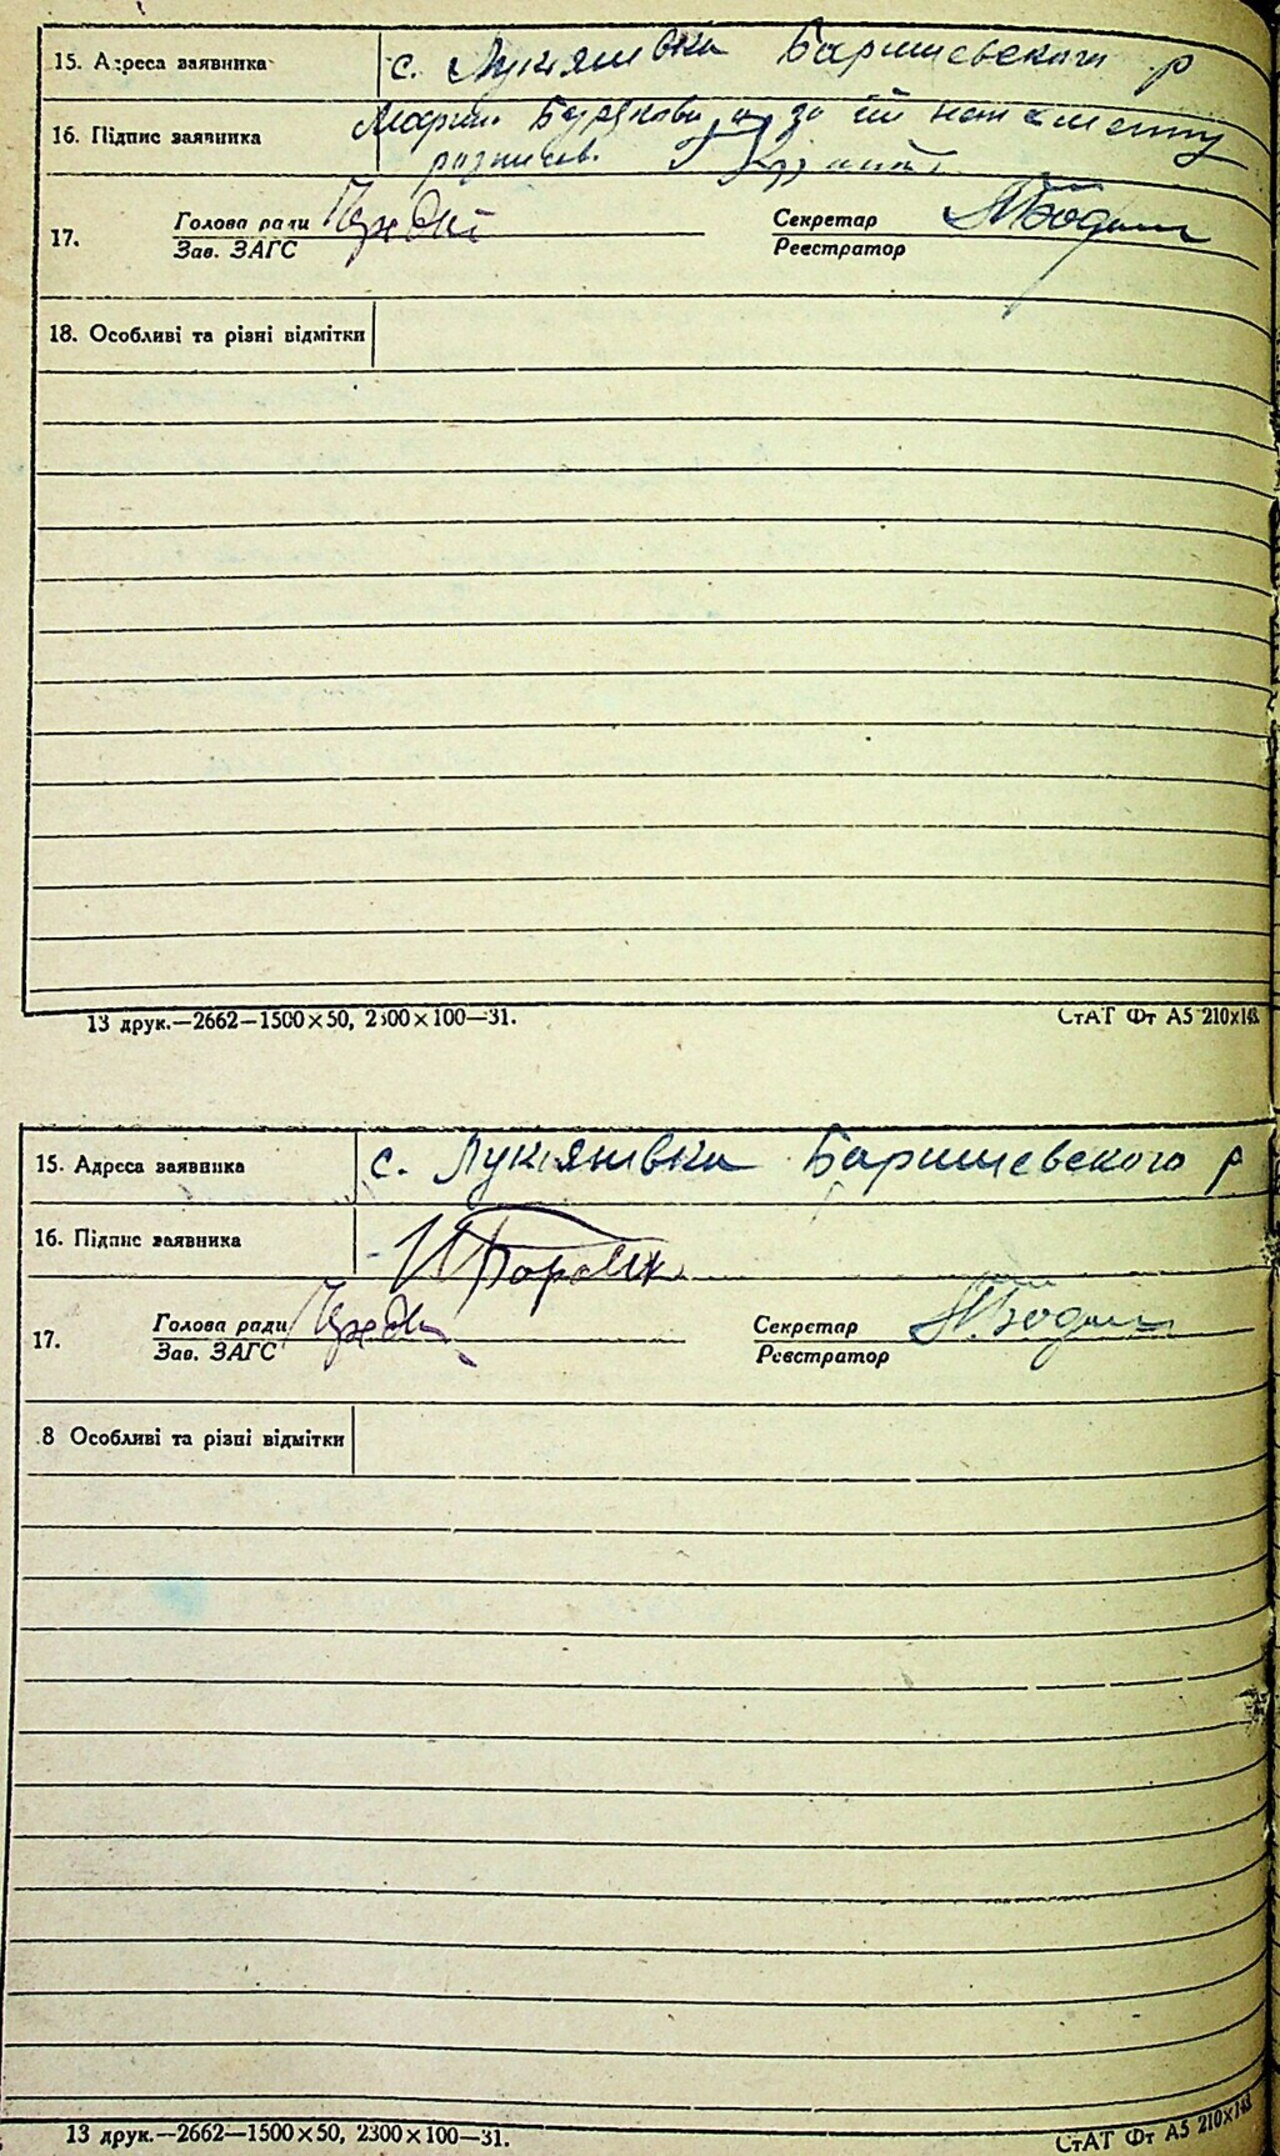 15. Адреса заявника с. Лукянивка Баришевского р
16. Підпис заявника за
17. Голова ради Секретар
Зав. ЗАГС Реєстратор
18. Особливі та різні відмітки
13 друк.—2662—1500×50, 2300×100—31. СтАТ Фт А5 210×148
15. Адреса заявника с. Лукянивка Баришевского р
16. Підпис заявника
17. Голова ради Секретар
Зав. ЗАГС Реєстратор
8 Особливі та різні відмітки
13 друк.—2662—1500×50, 2300×100—31. СтАТ Фт А5 210×148